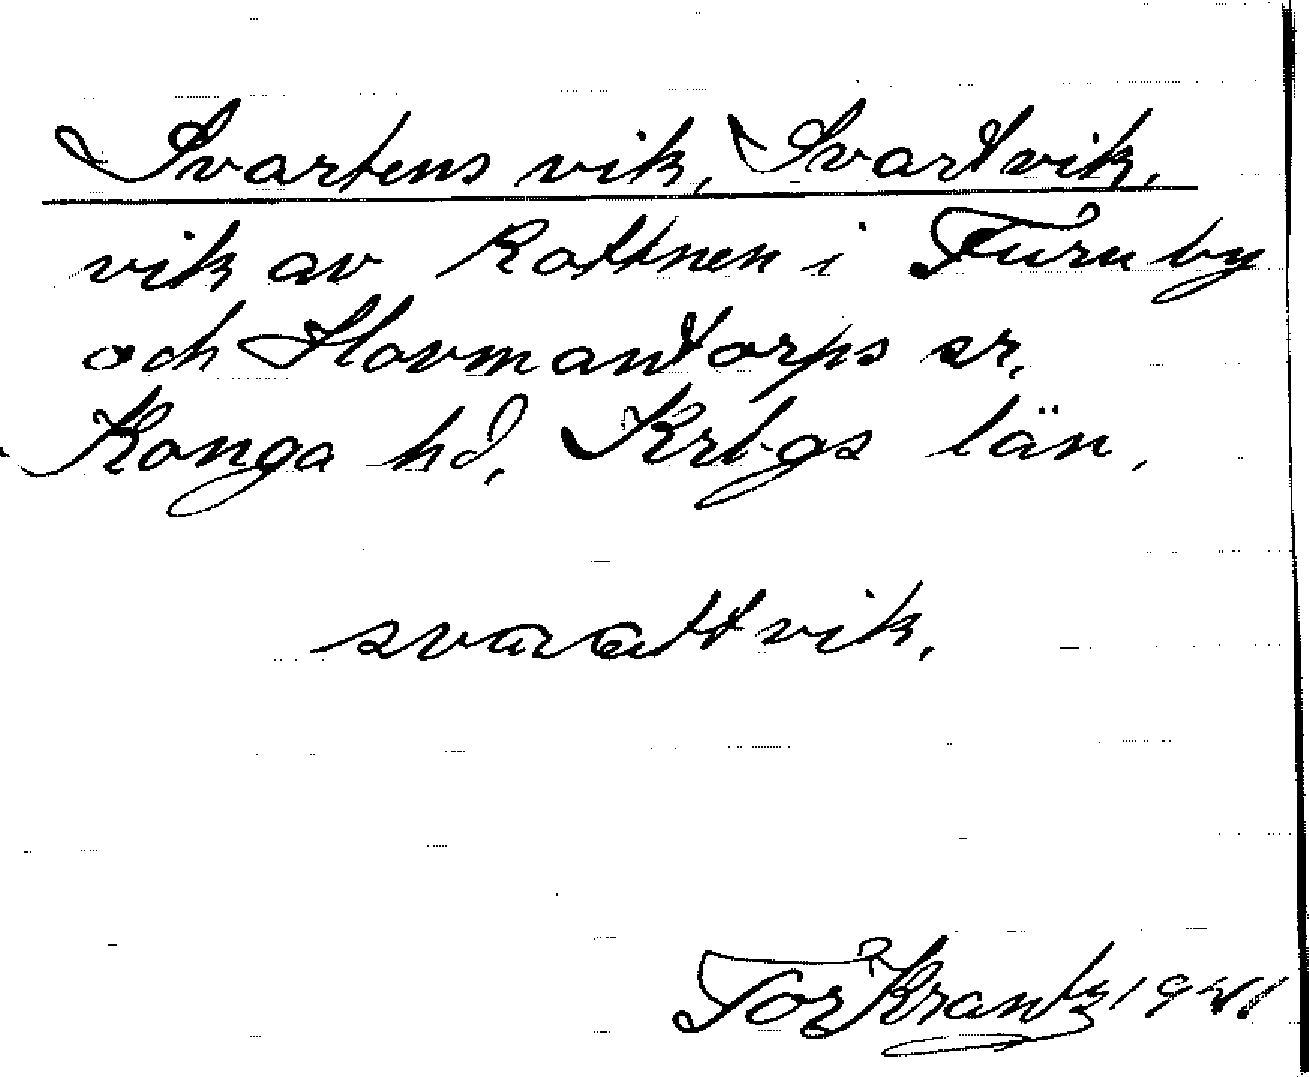 Svartens vik, Svartvik,
vik av Rottnen i Furuby
och Hovmantorps sr.
Konga hd, Krbgs län,
svarattvik,
Tor Krantz 1941